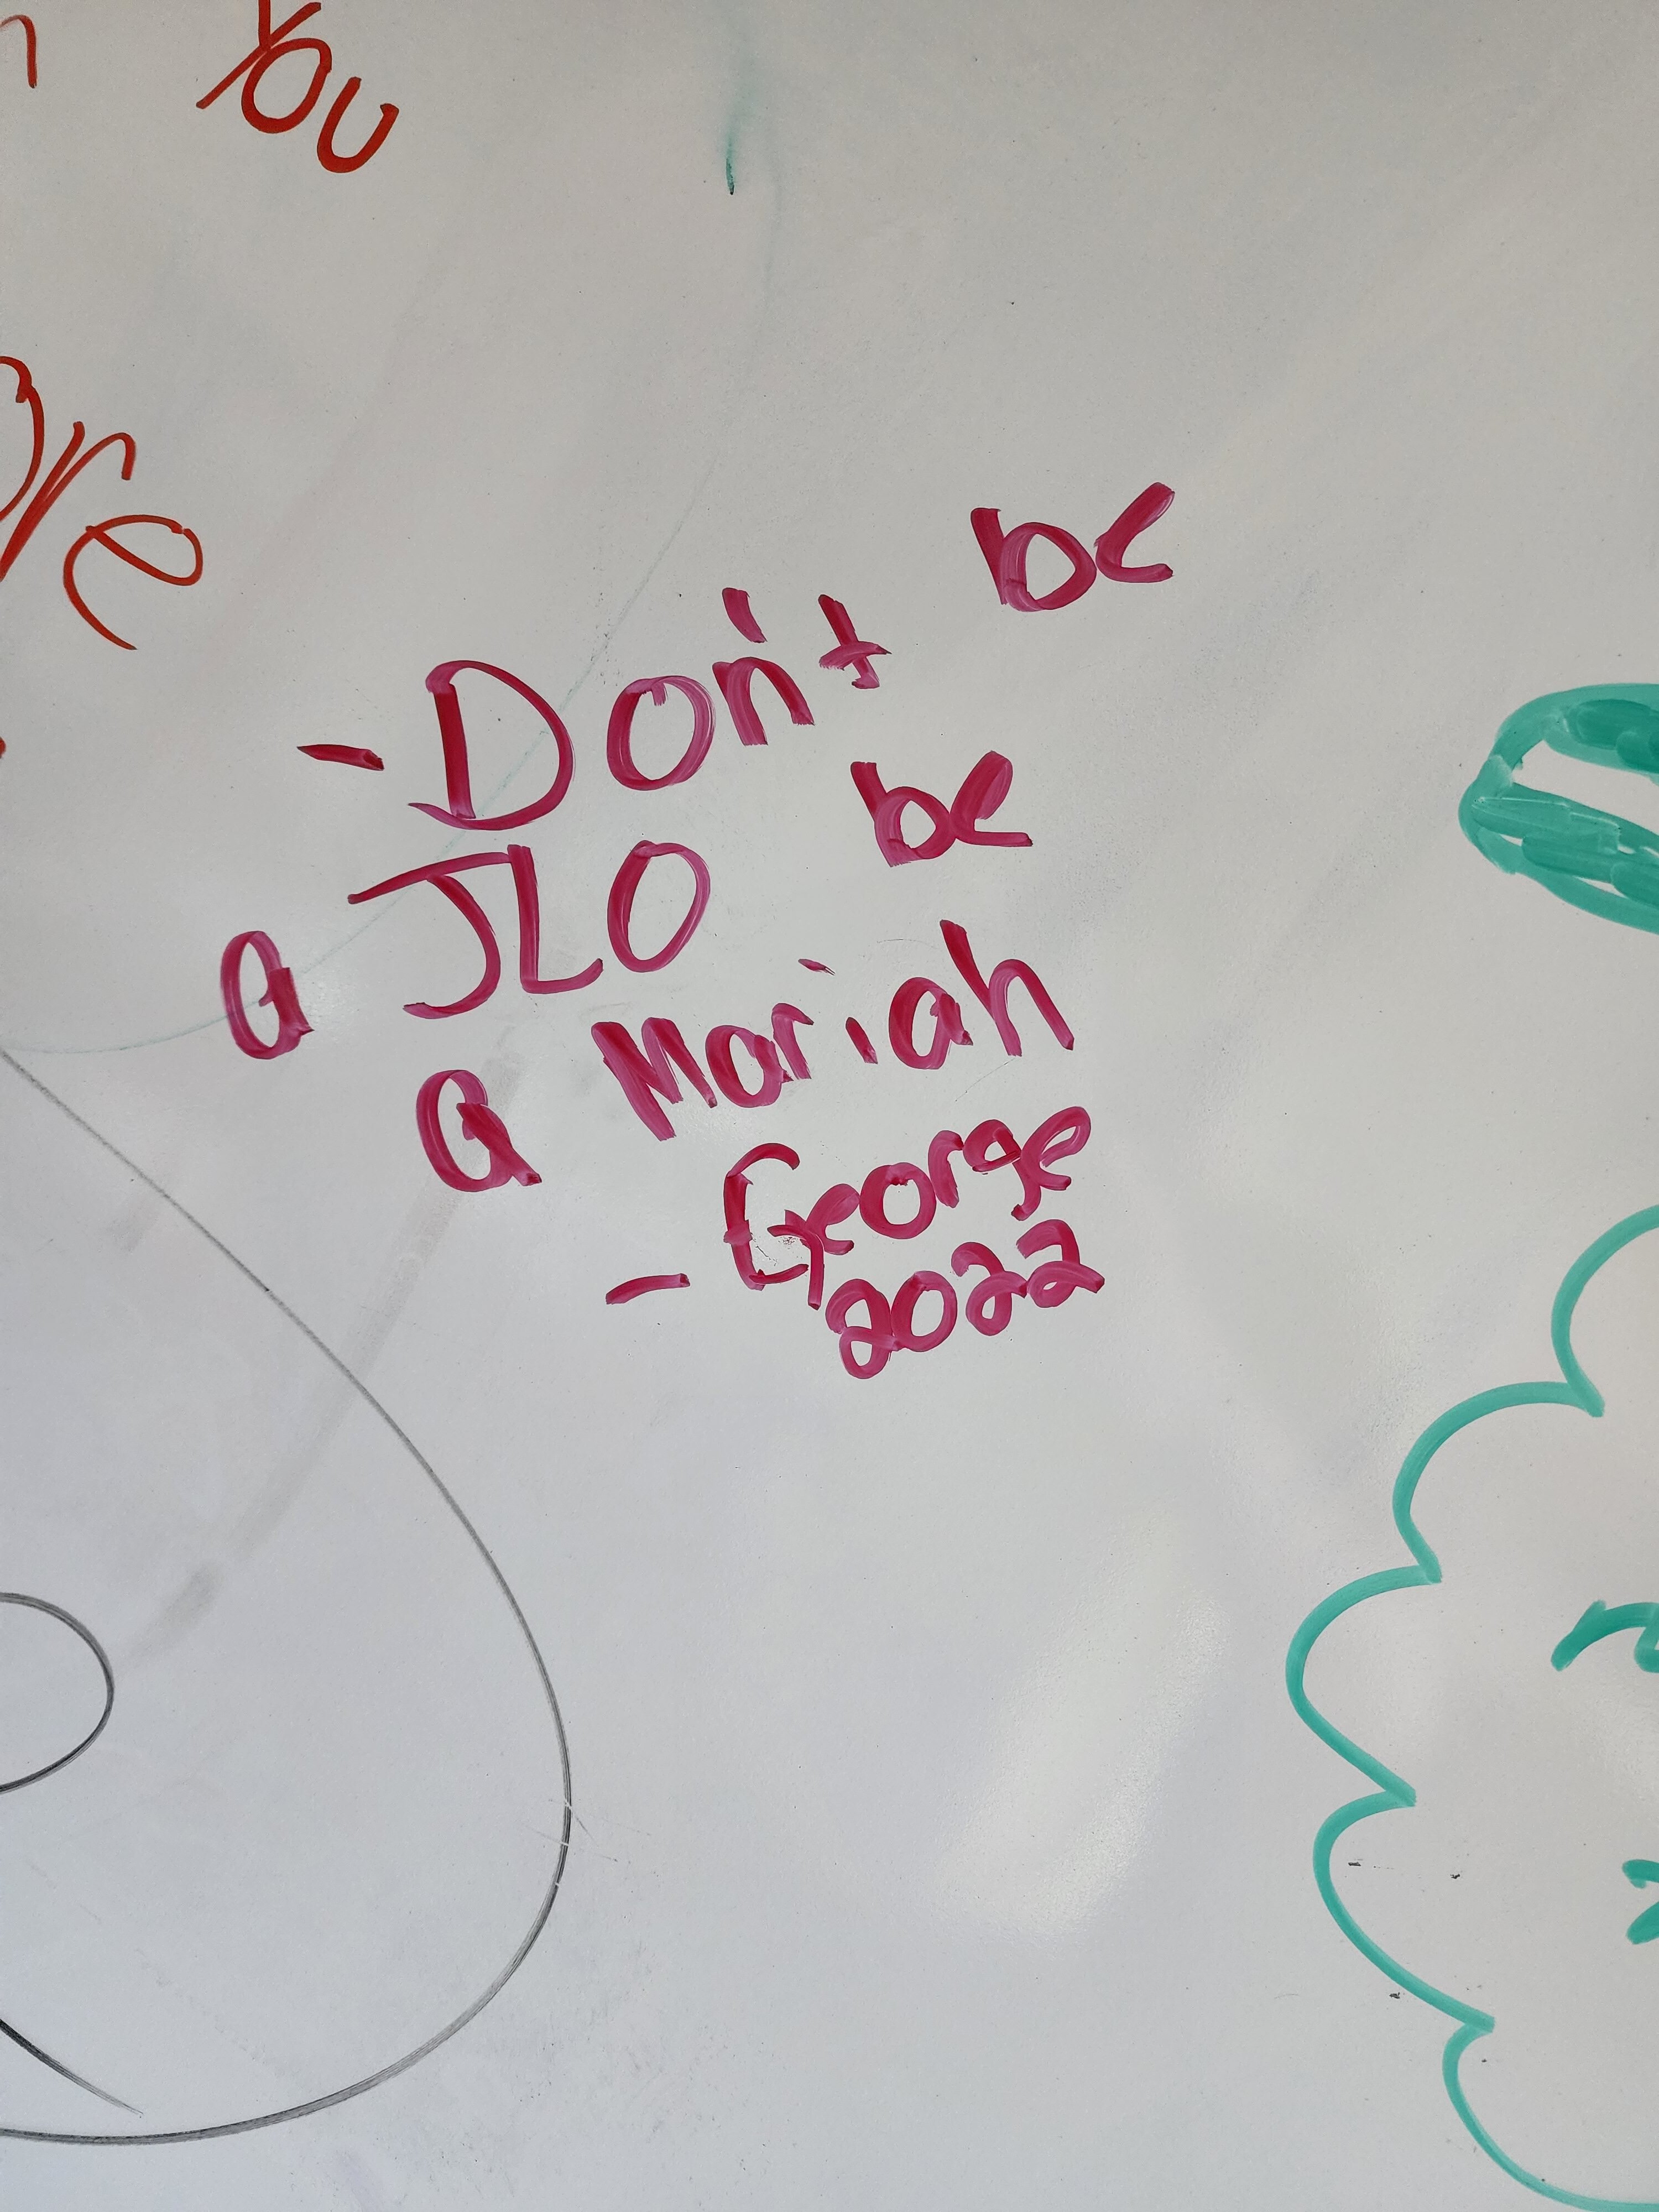 You
- Don't be
a JLO be
a Mariah
- George
2022